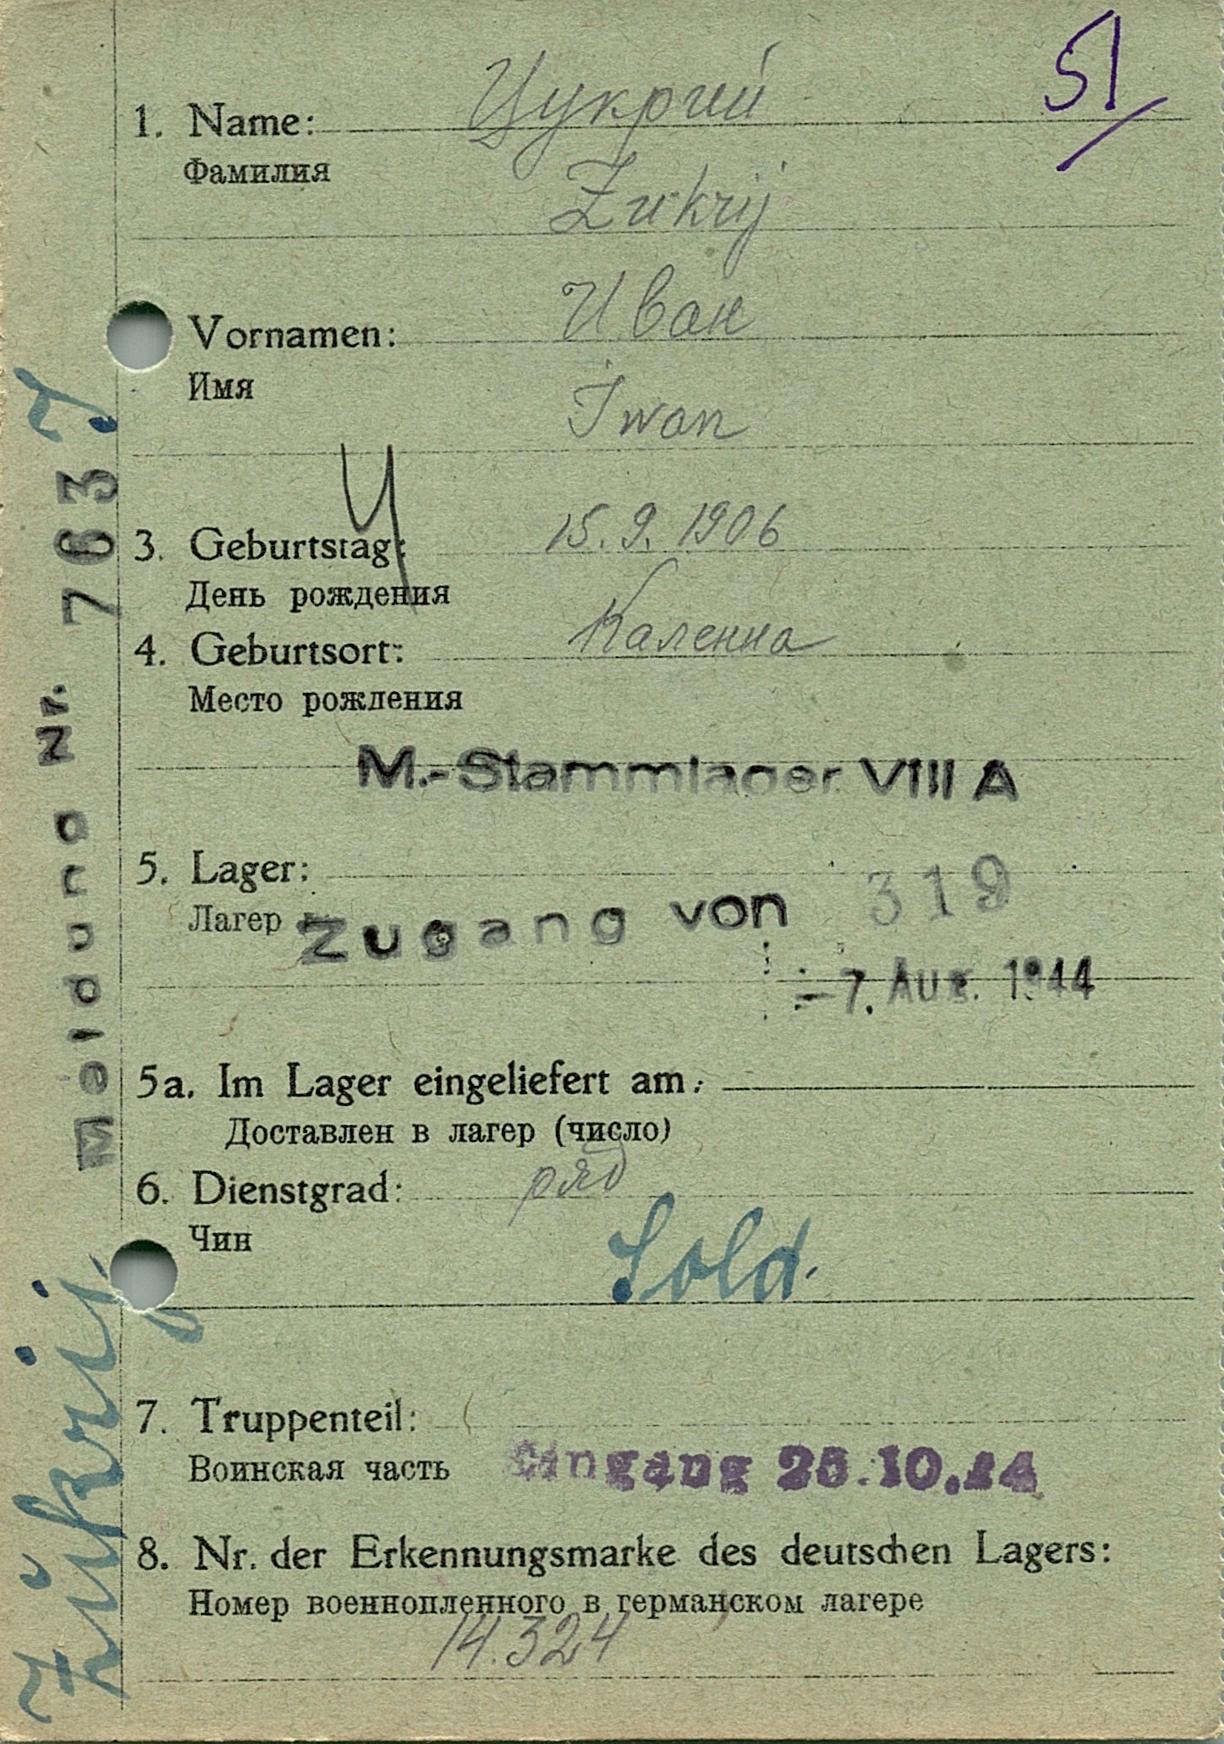 51
1. Name: Цукрий
Фамилия
Zukrij
Vornamen: Иван
Имя
Iwan
Ц
3. Geburtstag: 15.9.1906
День рождения
4. Geburtsort: Каленна
Место рождения
M.-Stammlager VIII A
5. Lager:
Лагер Zugang von 319
-7. Aug. 1944
5a. Im Lager eingeliefert am:
Доставлен в лагер (число)
6. Dienstgrad: ряд
Чин
Sold.
7. Truppenteil:
Воинская часть Eingang 25.10.44
8. Nr. der Erkennungsmarke des deutschen Lagers:
Номер военнопленного в германском лагере
14.324
Meldung Nr. 763
Zükrij, J